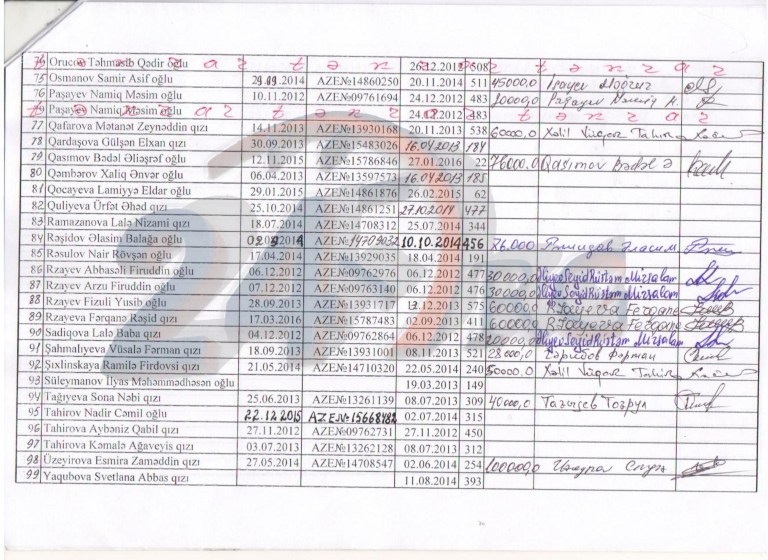 Orucov Təhmasib Qədir oğlu 26.12.2012 508
75 Osmanov Samir Asif oğlu 29.09.2014 AZE№14860250 20.11.2014 511 45000,0
76 Paşayev Namiq Məsim oğlu 10.11.2012 AZE№09761694 24.12.2012 483 Paşayev Namiq M.
Paşayev Namiq Məsim oğlu 24.12.2012 483
77 Qafarova Mətanət Zeynəddin qızı 14.11.2013 AZE№13930168 20.11.2013 538 60000,0 Xəlil Vüqar Tahir
78 Qardaşova Gülşən Elxan qızı 30.09.2013 AZE№15483026 16.04.2013 184
79 Qasımov Bədəl Əliaşrəf oğlu 12.11.2015 AZE№15786846 27.01.2016 22 76000,0 Qasımov Bədəl Ə
80 Qəmbərov Xaliq Ənvər oğlu 06.04.2013 AZE№13597573 16.04.2013 185
81 Qocayeva Lamiyyə Eldar oğlu 29.01.2015 AZE№14861876 26.02.2015 62
82 Quliyeva Ürfət Əhəd qızı 25.10.2014 AZE№14861251 27.10.2014 477
83 Ramazanova Lalə Nizami qızı 18.07.2014 AZE№14708312 25.07.2014 344
84 Rəşidov Əlasim Balağa oğlu 10.10.2014 456 26.000
85 Rəsulov Nair Rövşən oğlu 17.04.2014 AZE№13929035 18.04.2014 191
86 Rzayev Abbasəli Firuddin oğlu 06.12.2012 AZE№09762976 06.12.2012 477 30000,0 Əliyev Seyid Rüstəm Mirsalam
87 Rzayev Arzu Firuddin oğlu 07.12.2012 AZE№09763140 06.12.2012 476 30000,0 Əliyev Seyid Rüstəm Mirsalam
88 Rzayev Fizuli Yusib oğlu 28.09.2013 AZE№13931717 12.2013 575 60000,0 Rzayevа Fərqanə
89 Rzayeva Fərqanə Rəşid qızı 17.03.2016 AZE№15787483 02.09.2013 411 60000,0 Rzayeva Fərqanə
90 Sadiqova Lalə Baba qızı 04.12.2012 AZE№09762864 06.12.2012 478 20000,0 Əliyev Seyid Rüstəm Mirsalam
91 Şahmalıyeva Vüsalə Fərman qızı 18.09.2013 AZE№13931001 08.11.2013 521 28.000,0
92 Şıxlinskaya Ramilə Firdovsi qızı 21.05.2014 AZE№14710320 22.05.2014 240 50000,0 Xəlil Vüqar Tahir
93 Süleymanov İlyas Məhəmmədhəsən oğlu 19.03.2013 149
94 Tağıyeva Sona Nəbi qızı 25.06.2013 AZE№13261139 08.07.2013 309 40000,0
95 Tahirov Nadir Cəmil oğlu 22.12.2015 AZE№15668482 02.07.2014 315
96 Tahirova Aybəniz Qabil qızı 27.11.2012 AZE№09762731 27.11.2012 450
97 Tahirova Kəmalə Ağaveyis qızı 03.07.2013 AZE№13262128 08.07.2013 312
98 Üzeyirova Esmira Zaməddin qızı 27.05.2014 AZE№14708547 02.06.2014 254 100000,0
99 Yaqubova Svetlana Abbas qızı 11.08.2014 393